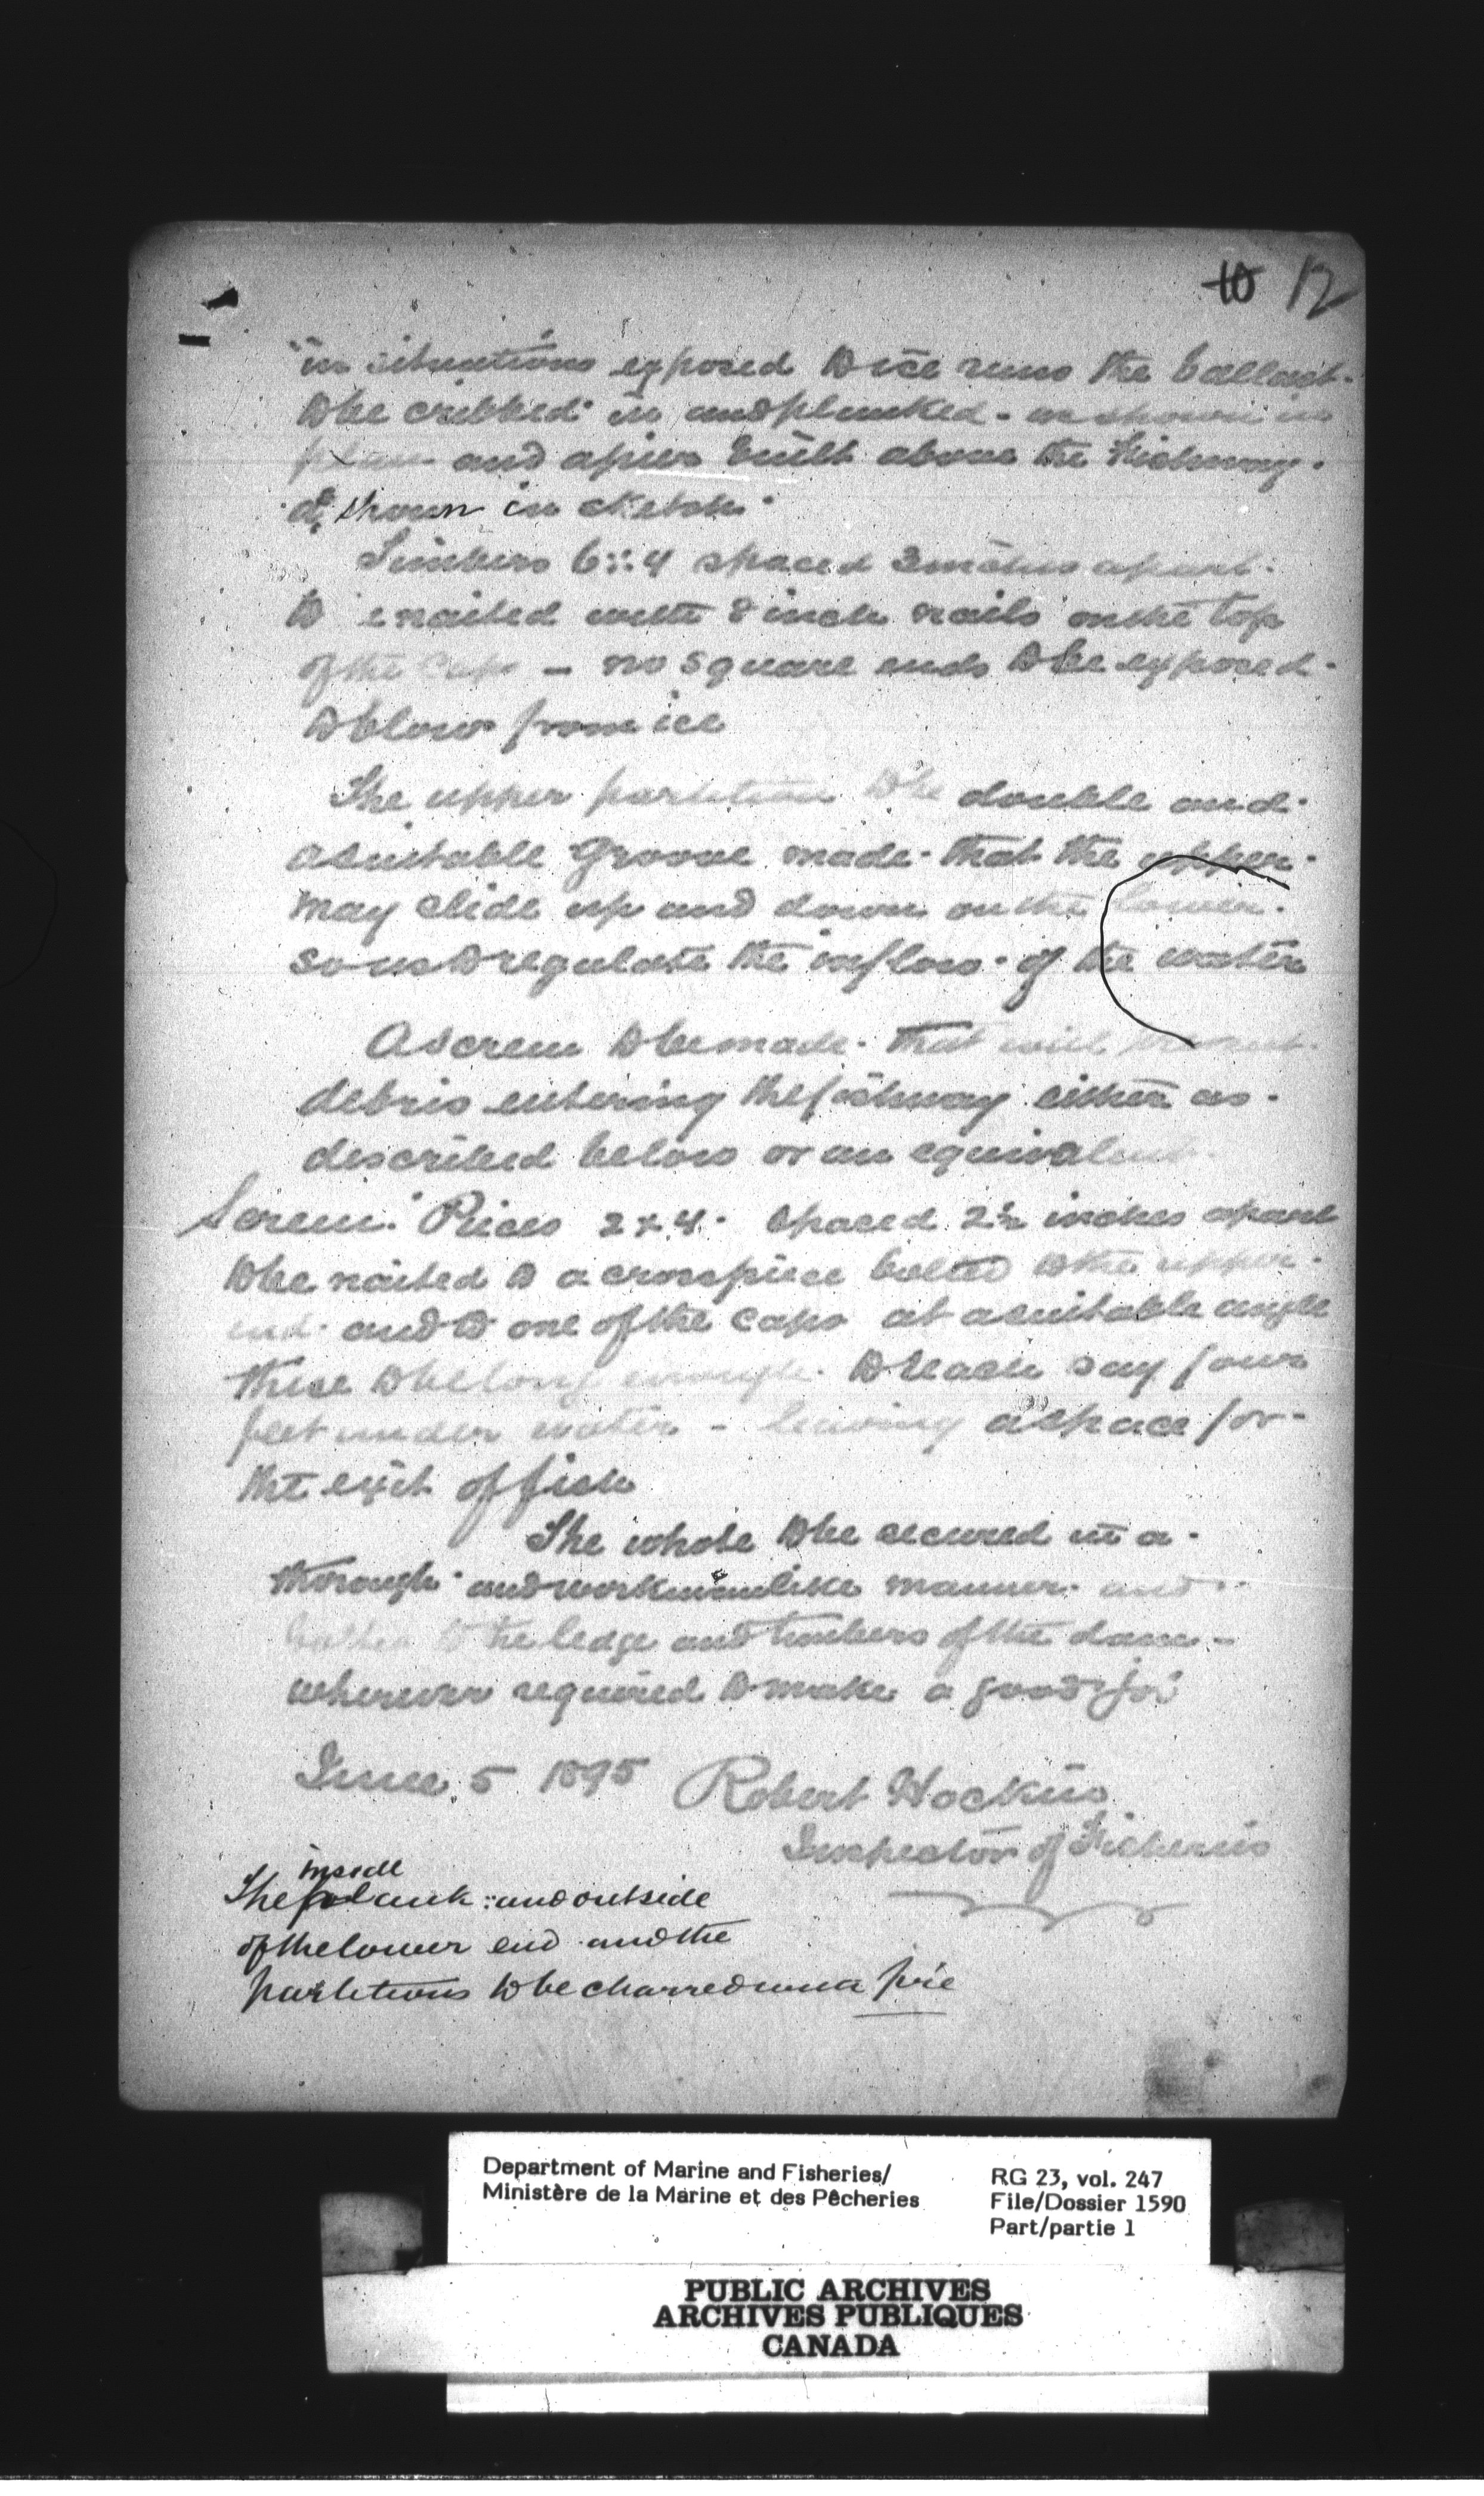 10 12
in situations exposed to ice runs the ballast
to be cribbed in and planked - as shown in
plan and a pier built above the Fishway.
as shown in sketch.
Timbers 6 :: 4 spaced 3 inches apart.
to e nailed with 8 inch nails on the top
of the Caps - no square ends to be exposed.
to blows from ice
The upper partition to be double and
a suitable Groove made that the upper
may slide up and down on the lower.
so as to regulate the inflow of the water
A screen to be made that will prevent
debris entering the fishway either as
described below or an equivalent.
Screen. Pieces 2 x 4. spaced 2½ inches apart
to be nailed to a crosspiece bolted to the upper
end and to one of the caps at a suitable angle
these to be long enough to reach say four
feet under water - leaving a space for
the exit of fish
The whole to be secured in a
thorough and workmanlike manner and
bolted to the ledge and timbers of the dam -
wherever required to make a good job
June 5 1895 Robert Hockin
Inspector of Fisheries
inside
The plank :: and outside
of the lower end and the
partitions to be charred over a fire
Department of Marine and Fisheries/ RG 23, vol. 247
Ministère de la Marine et des Pêcheries File/Dossier 1590
Part/partie 1
PUBLIC ARCHIVES
ARCHIVES PUBLIQUES
CANADA